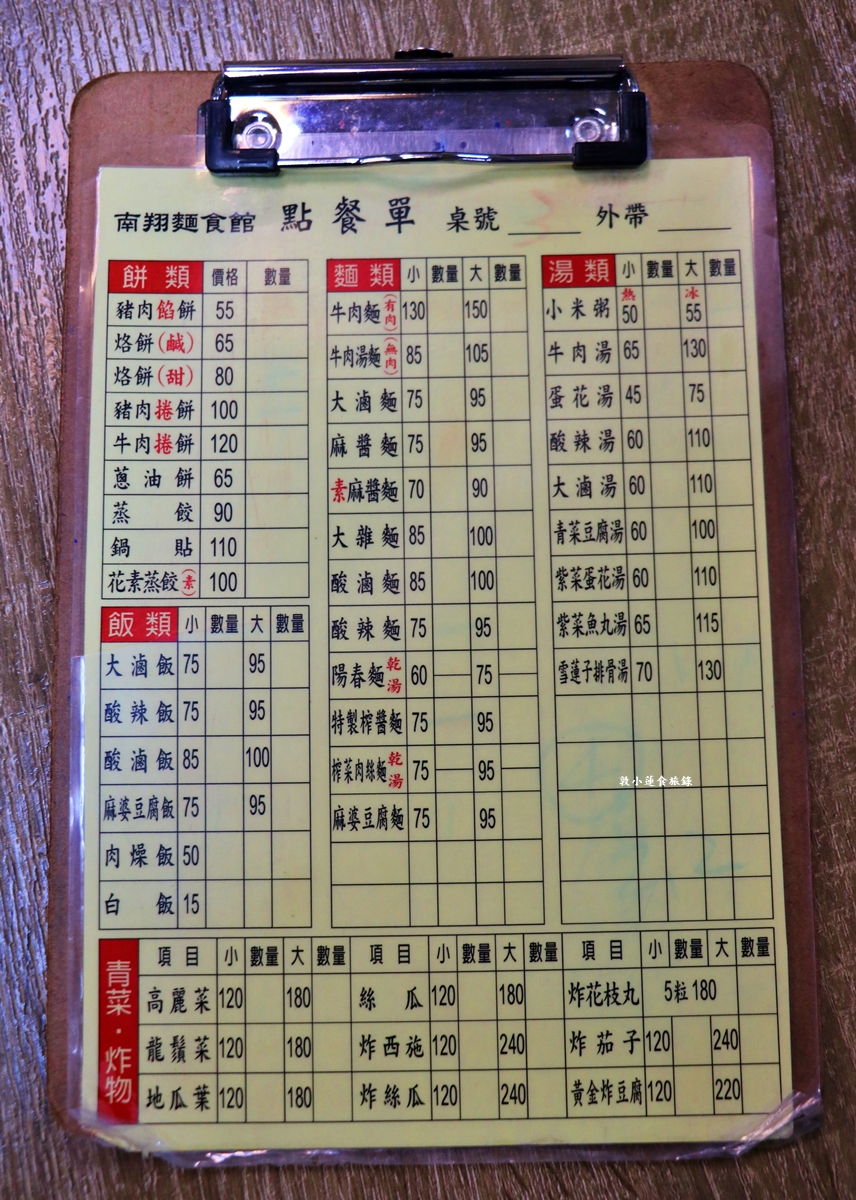 南翔麵食館 點餐單 桌號 3 外帶
餅類 價格 數量
豬肉餡餅 55
烙餅(鹹) 65
烙餅(甜) 80
豬肉捲餅 100
牛肉捲餅 120
蔥油餅 65
蒸餃 90
鍋貼 110
花素蒸餃(素) 100
飯類 小 數量 大 數量
大滷飯 75 95
酸辣飯 75 95
酸滷飯 85 100
麻婆豆腐飯 75 95
肉燥飯 50
白飯 15
麵類 小 數量 大 數量
牛肉麵(有肉) 130 150
牛肉湯麵(無肉) 85 105
大滷麵 75 95
麻醬麵 75 95
素麻醬麵 70 90
大雜麵 85 100
酸滷麵 85 100
酸辣麵 75 95
陽春麵 乾 湯 60 75
特製榨醬麵 75 95
榨菜肉絲麵 乾 湯 75 95
麻婆豆腐麵 75 95
湯類 小 數量 大 數量
小米粥 熱 50 冰 55
牛肉湯 65 130
蛋花湯 45 75
酸辣湯 60 110
大滷湯 60 110
青菜豆腐湯 60 100
紫菜蛋花湯 60 110
紫菜魚丸湯 65 115
雪蓮子排骨湯 70 130
敦小蓮食旅錄
青菜·炸物
項目 小 數量 大 數量 項目 小 數量 大 數量 項目 小 數量 大 數量
高麗菜 120 180 絲瓜 120 180 炸花枝丸 5粒180
龍鬚菜 120 180 炸西施 120 240 炸茄子 120 240
地瓜葉 120 180 炸絲瓜 120 240 黃金炸豆腐 120 220